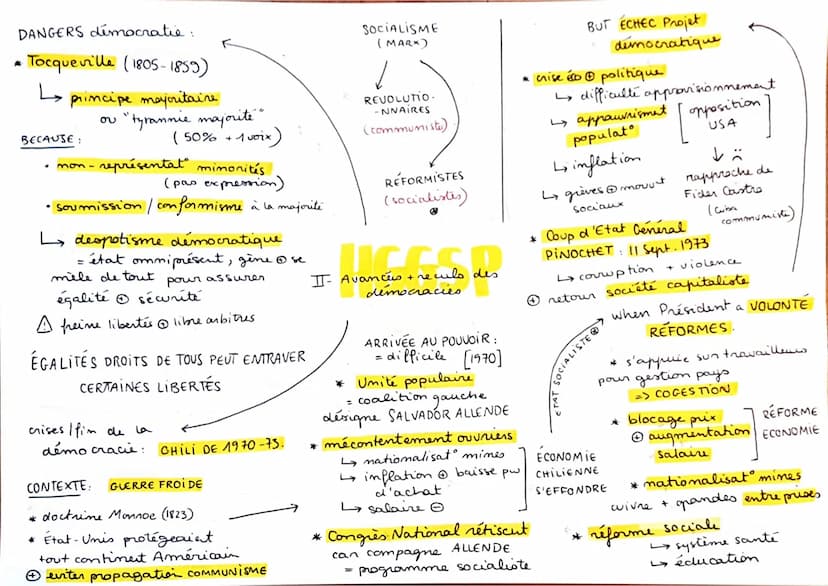 DANGERS démocratie :
* Tocqueville (1805-1859)
↳ principe majoritaire
ou "tyrannie majorité"
(50% + 1 voix)
BECAUSE :
• non-représentat° minorités
(pas expression)
• soumission / conformisme à la majorité
↳ despotisme démocratique
= état omniprésent, gène ⊕ se
mêle de tout pour assurer
égalité ⊕ sécurité
⚠ freine libertés ⊕ libre arbitres
ÉGALITÉS DROITS DE TOUS PEUT ENTRAVER
CERTAINES LIBERTÉS
crises/fin de la
démocracie : CHILI DE 1970-73.
CONTEXTE : GUERRE FROIDE
* doctrine Monroe (1823)
* État-Unis protégeaient
tout continent Américain
⊕ eviter propagation COMMUNISME
SOCIALISME
(MARX)
REVOLUTIO-
-NNAIRES
(communiste)
RÉFORMISTES
(socialistes)
HGGSP
II- Avancées + reculs des
démocracies
ARRIVÉE AU POUVOIR :
= difficile [1970]
* Unité populaire
= coalition gauche
désigne SALVADOR ALLENDE
* mécontentement ouvriers
↳ nationalisat° mines
↳ inflation ⊕ baisse pw
d'achat
↳ salaire ⊖
ÉCONOMIE
CHILIENNE
S'EFFONDRE
* Congrès National réticent
car compagne ALLENDE
= programme socialiste
BUT ÉCHEC Projet
démocratique
* crise éco ⊕ politique
↳ difficulté approvisionnement
↳ appauvrismt
populat°
[opposition
USA]
↳ inflation
↳ grèves ⊕ mouvt
sociaux
rapproche de
Fidel Castro
(Cuba
communiste)
* Coup d'Etat Général
PINOCHET : 11 Sept. 1973
↳ corruption + violence
⊕ retour société capitaliste
when Président a VOLONTÉ
RÉFORMES.
ETAT SOCIALISTE
* s'appuie sur travailleurs
pour gestion pays
=> COGESTION
* blocage prix
⊕ augmentation
salaire
RÉFORME
ECONOMIE
* nationalisat° mines
cuivre + grandes entreprises
* réforme sociale
↳ système santé
↳ éducation